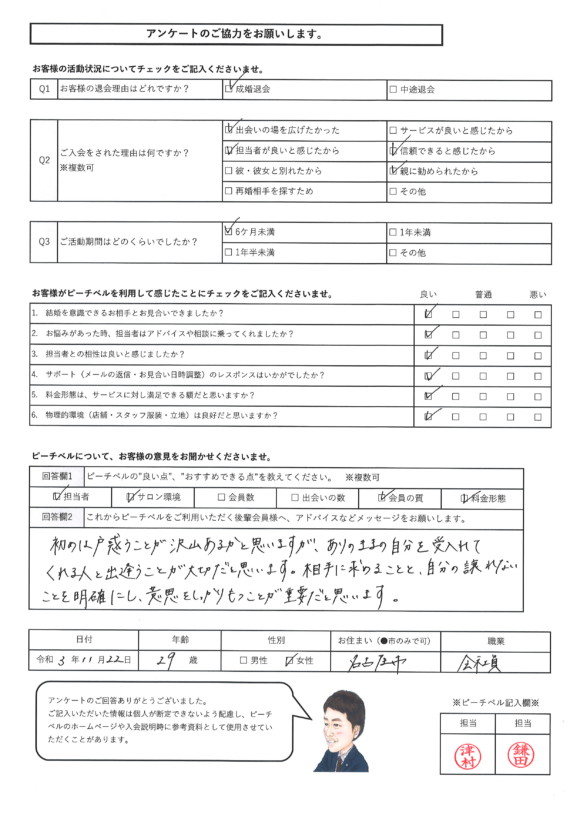 アンケートのご協力をお願いします。
お客様の活動状況についてチェックをご記入くださいませ。
Q1 お客様の退会理由はどれですか？ 成婚退会 中途退会
出会いの場を広げたかった サービスが良いと感じたから
Q2 ご入会をされた理由は何ですか？ 担当者が良いと感じたから 信頼できると感じたから
※複数可 彼・彼女と別れたから 親に勧められたから
再婚相手を探すため その他
Q3 ご活動期間はどのくらいでしたか？ 6ケ月未満 1年未満
1年半未満 その他
お客様がピーチベルを利用して感じたことにチェックをご記入くださいませ。 良い 普通 悪い
1. 結婚を意識できるお相手とお見合いできましたか？
2. お悩みがあった時、担当者はアドバイスや相談に乗ってくれましたか？
3. 担当者との相性は良いと感じましたか？
4. サポート（メールの返信・お見合い日時調整）のレスポンスはいかがでしたか？
5. 料金形態は、サービスに対し満足できる額だと思いますか？
6. 物理的環境（店舗・スタッフ服装・立地）は良好だと思いますか？
ピーチベルについて、お客様の意見をお聞かせくださいませ。
回答欄1 ピーチベルの"良い点"、"おすすめできる点"を教えてください。 ※複数可
担当者 サロン環境 会員数 出会いの数 会員の質 料金形態
回答欄2 これからピーチベルをご利用いただく後輩会員様へ、アドバイスなどメッセージをお願いします。
初めは戸惑うことが沢山あるかと思いますが、ありのままの自分を受入れて
くれる人と出逢うことが大切だと思います。相手に求めることと、自分の譲れない
ことを明確にし、意思をしっかりもつことが重要だと思います。
日付 年齢 性別 お住まい（●市のみで可） 職業
令和 3 年 11 月 22 日 29 歳 男性 女性 名古屋市 会社員
アンケートのご回答ありがとうございました。
ご記入いただいた情報は個人が断定できないよう配慮し、ピーチ
ベルのホームページや入会説明時に参考資料として使用させてい
ただくことがあります。
※ピーチベル記入欄※
担当 担当
津村 鎌田